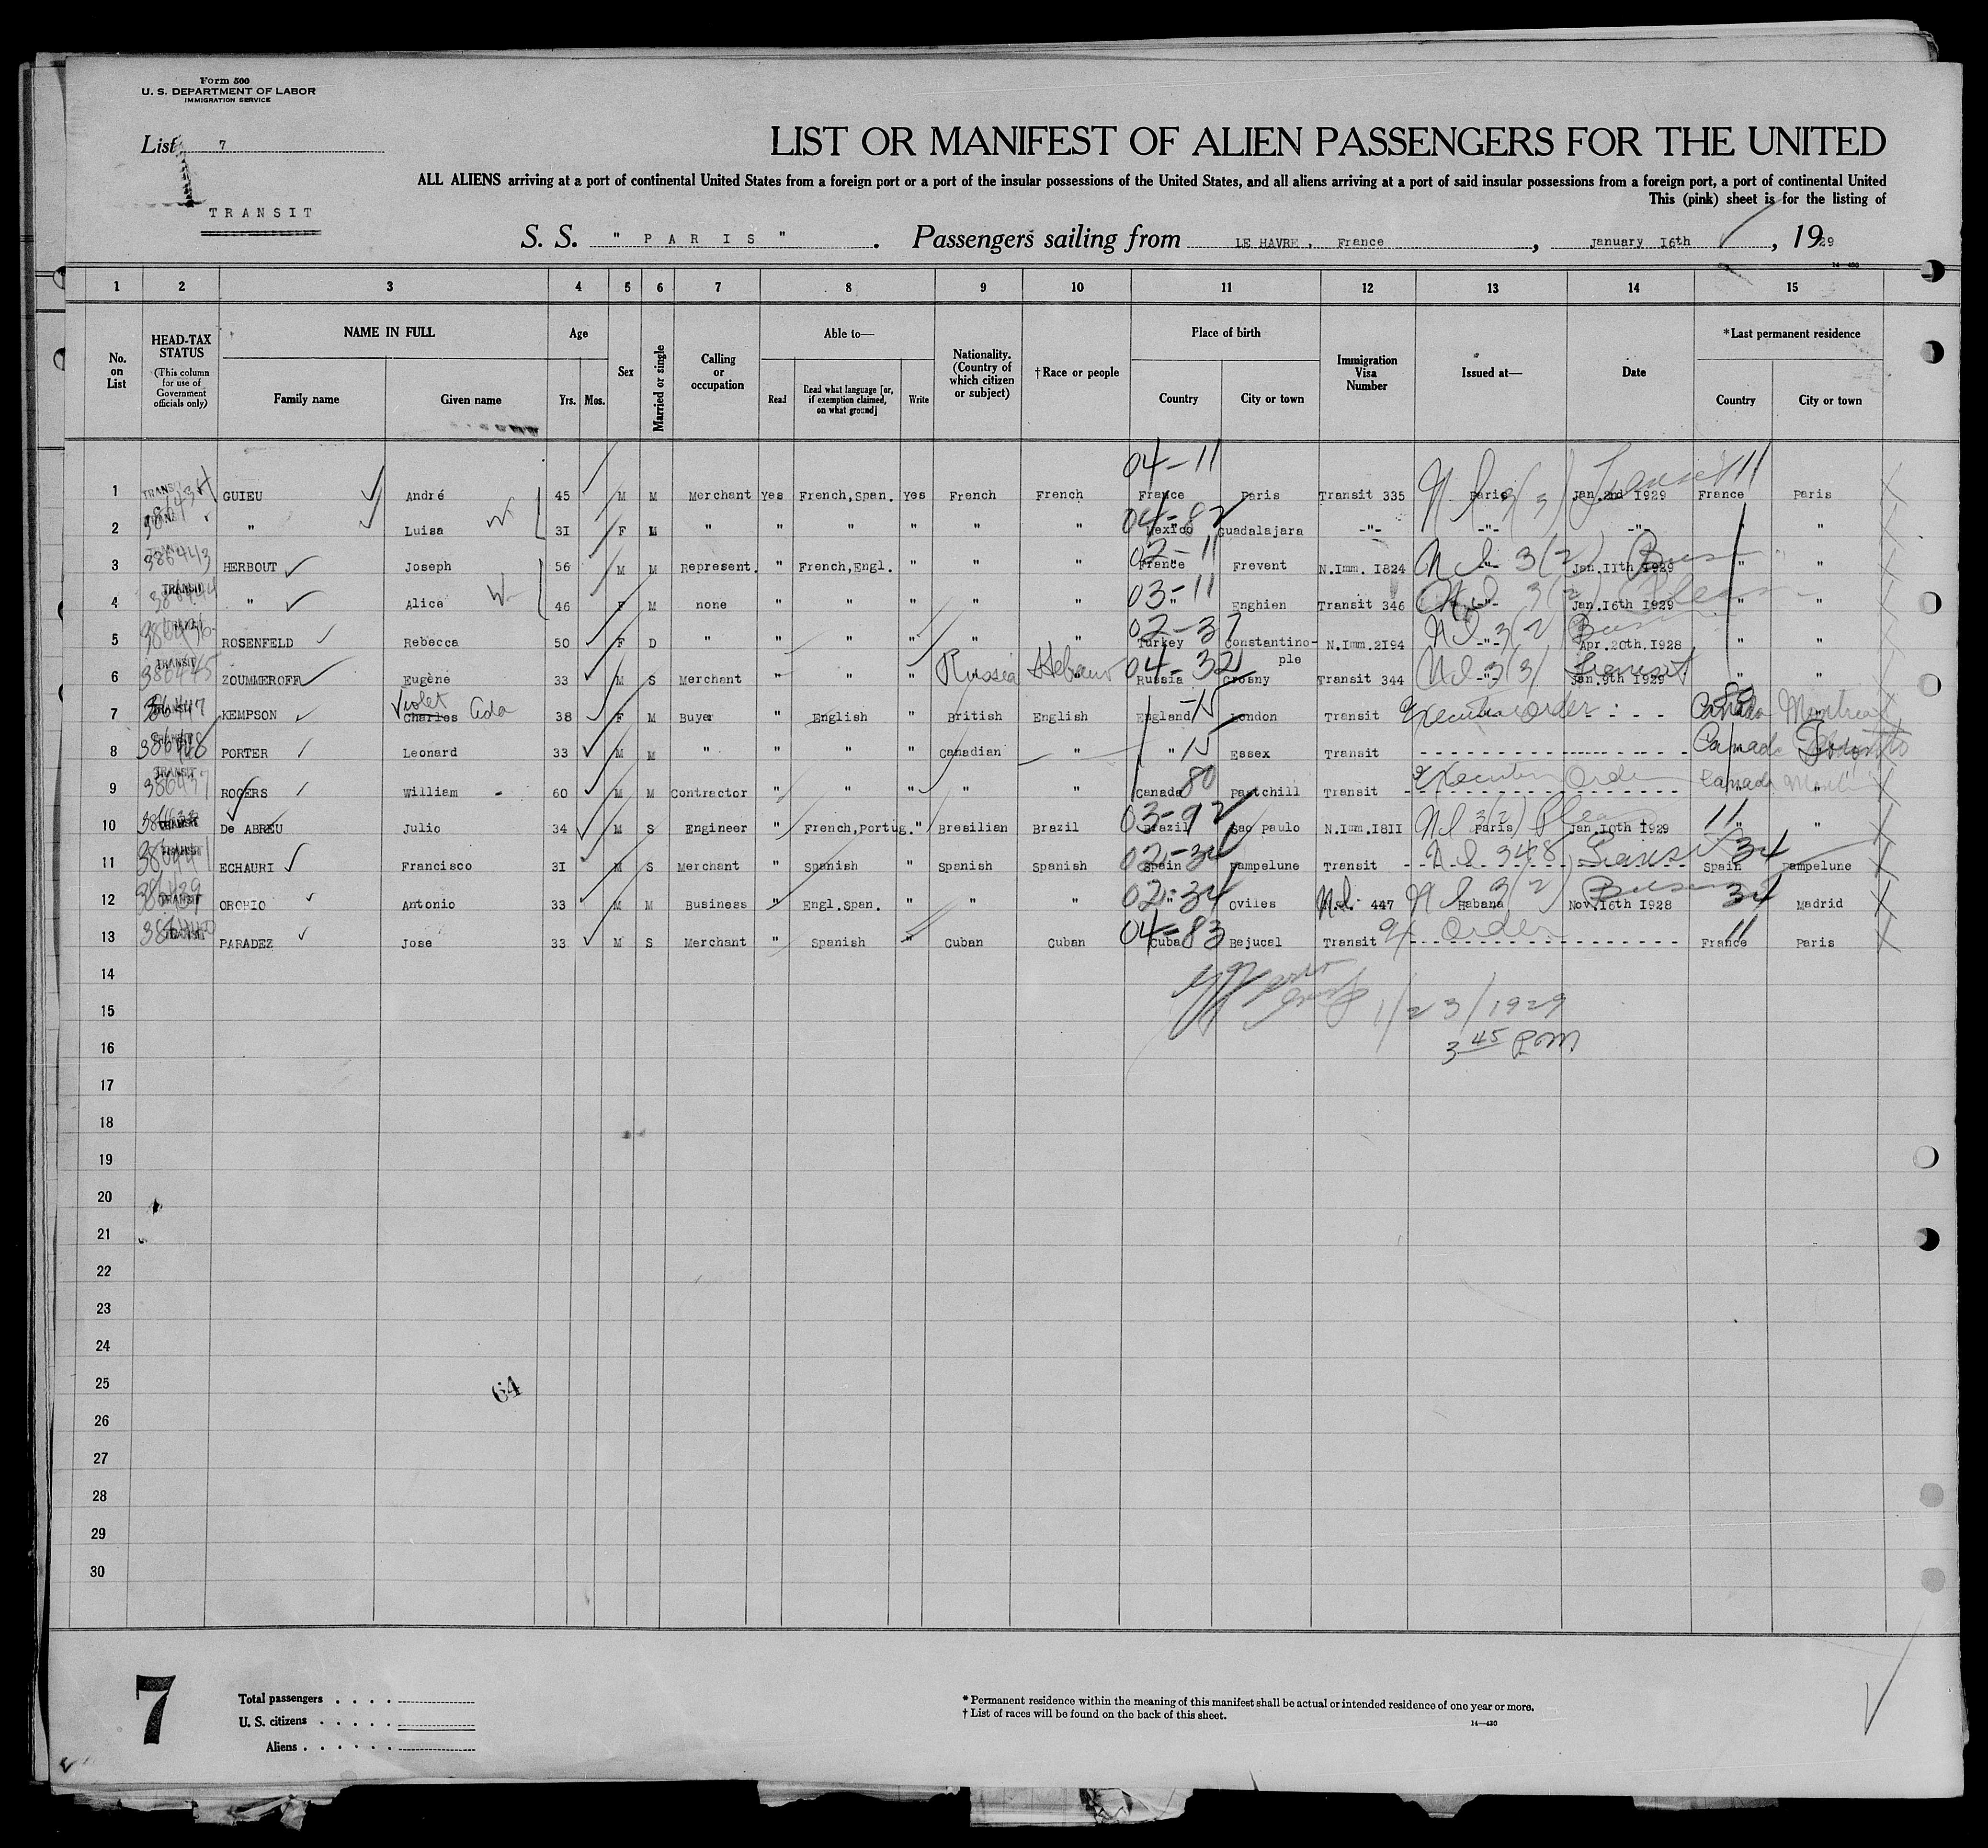 Form 500
U. S. DEPARTMENT OF LABOR
IMMIGRATION SERVICE
List 7
TRANSIT
LIST OR MANIFEST OF ALIEN PASSENGERS FOR THE UNITED
ALL ALIENS arriving at a port of continental United States from a foreign port or a port of the insular possessions of the United States, and all aliens arriving at a port of said insular possessions from a foreign port, a port of continental United
This (pink) sheet is for the listing of
S. S. " PARIS " . Passengers sailing from LE HAVRE, France , January 16th , 1929
14—430
1 2 3 4 5 6 7 8 9 10 11 12 13 14 15
No. on List
HEAD-TAX STATUS (This column for use of Government officials only)
NAME IN FULL Family name Given name
Age Yrs. Mos.
Sex
Married or single
Calling or occupation
Able to— Read Read what language [or, if exemption claimed, on what ground] Write
Nationality. (Country of which citizen or subject)
†Race or people
Place of birth Country City or town
Immigration Visa Number
Issued at—
Date
*Last permanent residence Country City or town
04-11
1 TRANSIT GUIEU André 45 M M Merchant Yes French,Span. Yes French French France Paris Transit 335 Paris 3(3) Transit Jan.2nd 1929 France 11 Paris
04-82
2 " Luisa W 31 F M " " " " " " Mexico Guadalajara -"- -"- -"- " "
02-11
3 386443 HERBOUT Joseph 56 M M Represent. " French,Engl. " " " France Frevent N.Imm. 1824 3(2) -"- Jan.11th 1929 " "
03-11
4 TRANSIT " Alice W 46 F M none " " " " " " Enghien Transit 346 3(2) -"- Jan.16th 1929 " "
02-37
5 ROSENFELD Rebecca 50 F D " " " " " " Turkey Constantino-ple N.Imm.2194 3(2) -"- Apr.20th.1928 " "
04-32
6 TRANSIT 386445 ZOUMMEROFF Eugène 33 M S Merchant " " " Russia Hebrew Russia Grosny Transit 344 3(3) -"- Transit Jan.9th 1929 " "
7 KEMPSON Charles Violet Ada 38 F M Buyer " English " British English England 15 London Transit Executive order Canada Montreal
8 TRANSIT PORTER Leonard 33 M M " " " " Canadian " " 15 Essex Transit Canada Toronto
9 TRANSIT 386437 ROGERS William 60 M M Contractor " " " " " Canada 80 Pastchill Transit Executive Order Canada
03-92
10 TRANSIT De ABREU Julio 34 M S Engineer " French,Portug. " Bresilian Brazil Brazil Sao Paulo N.Imm.1811 3(2) Paris Jan.10th 1929 11 " "
02-34
11 ECHAURI Francisco 31 M S Merchant " Spanish " Spanish Spanish Spain Pampelune Transit 348 Transit Spain 34 Pampelune
02-34
12 TRANSIT OROHIO Antonio 33 M M Business " Engl.Span. " " " " Oviles 447 3(2) Habana Nov.16th 1928 34 Madrid
04-83
13 PARADEZ Jose 33 M S Merchant " Spanish " Cuban Cuban Cuba Bejucal Transit Ex Order France 11 Paris
14
15 1/23/1929
16 3 45 P.M
17
18
19
20
21
22
23
24
25 64
26
27
28
29
30
7
Total passengers
U. S. citizens
Aliens
* Permanent residence within the meaning of this manifest shall be actual or intended residence of one year or more.
† List of races will be found on the back of this sheet.
14—430